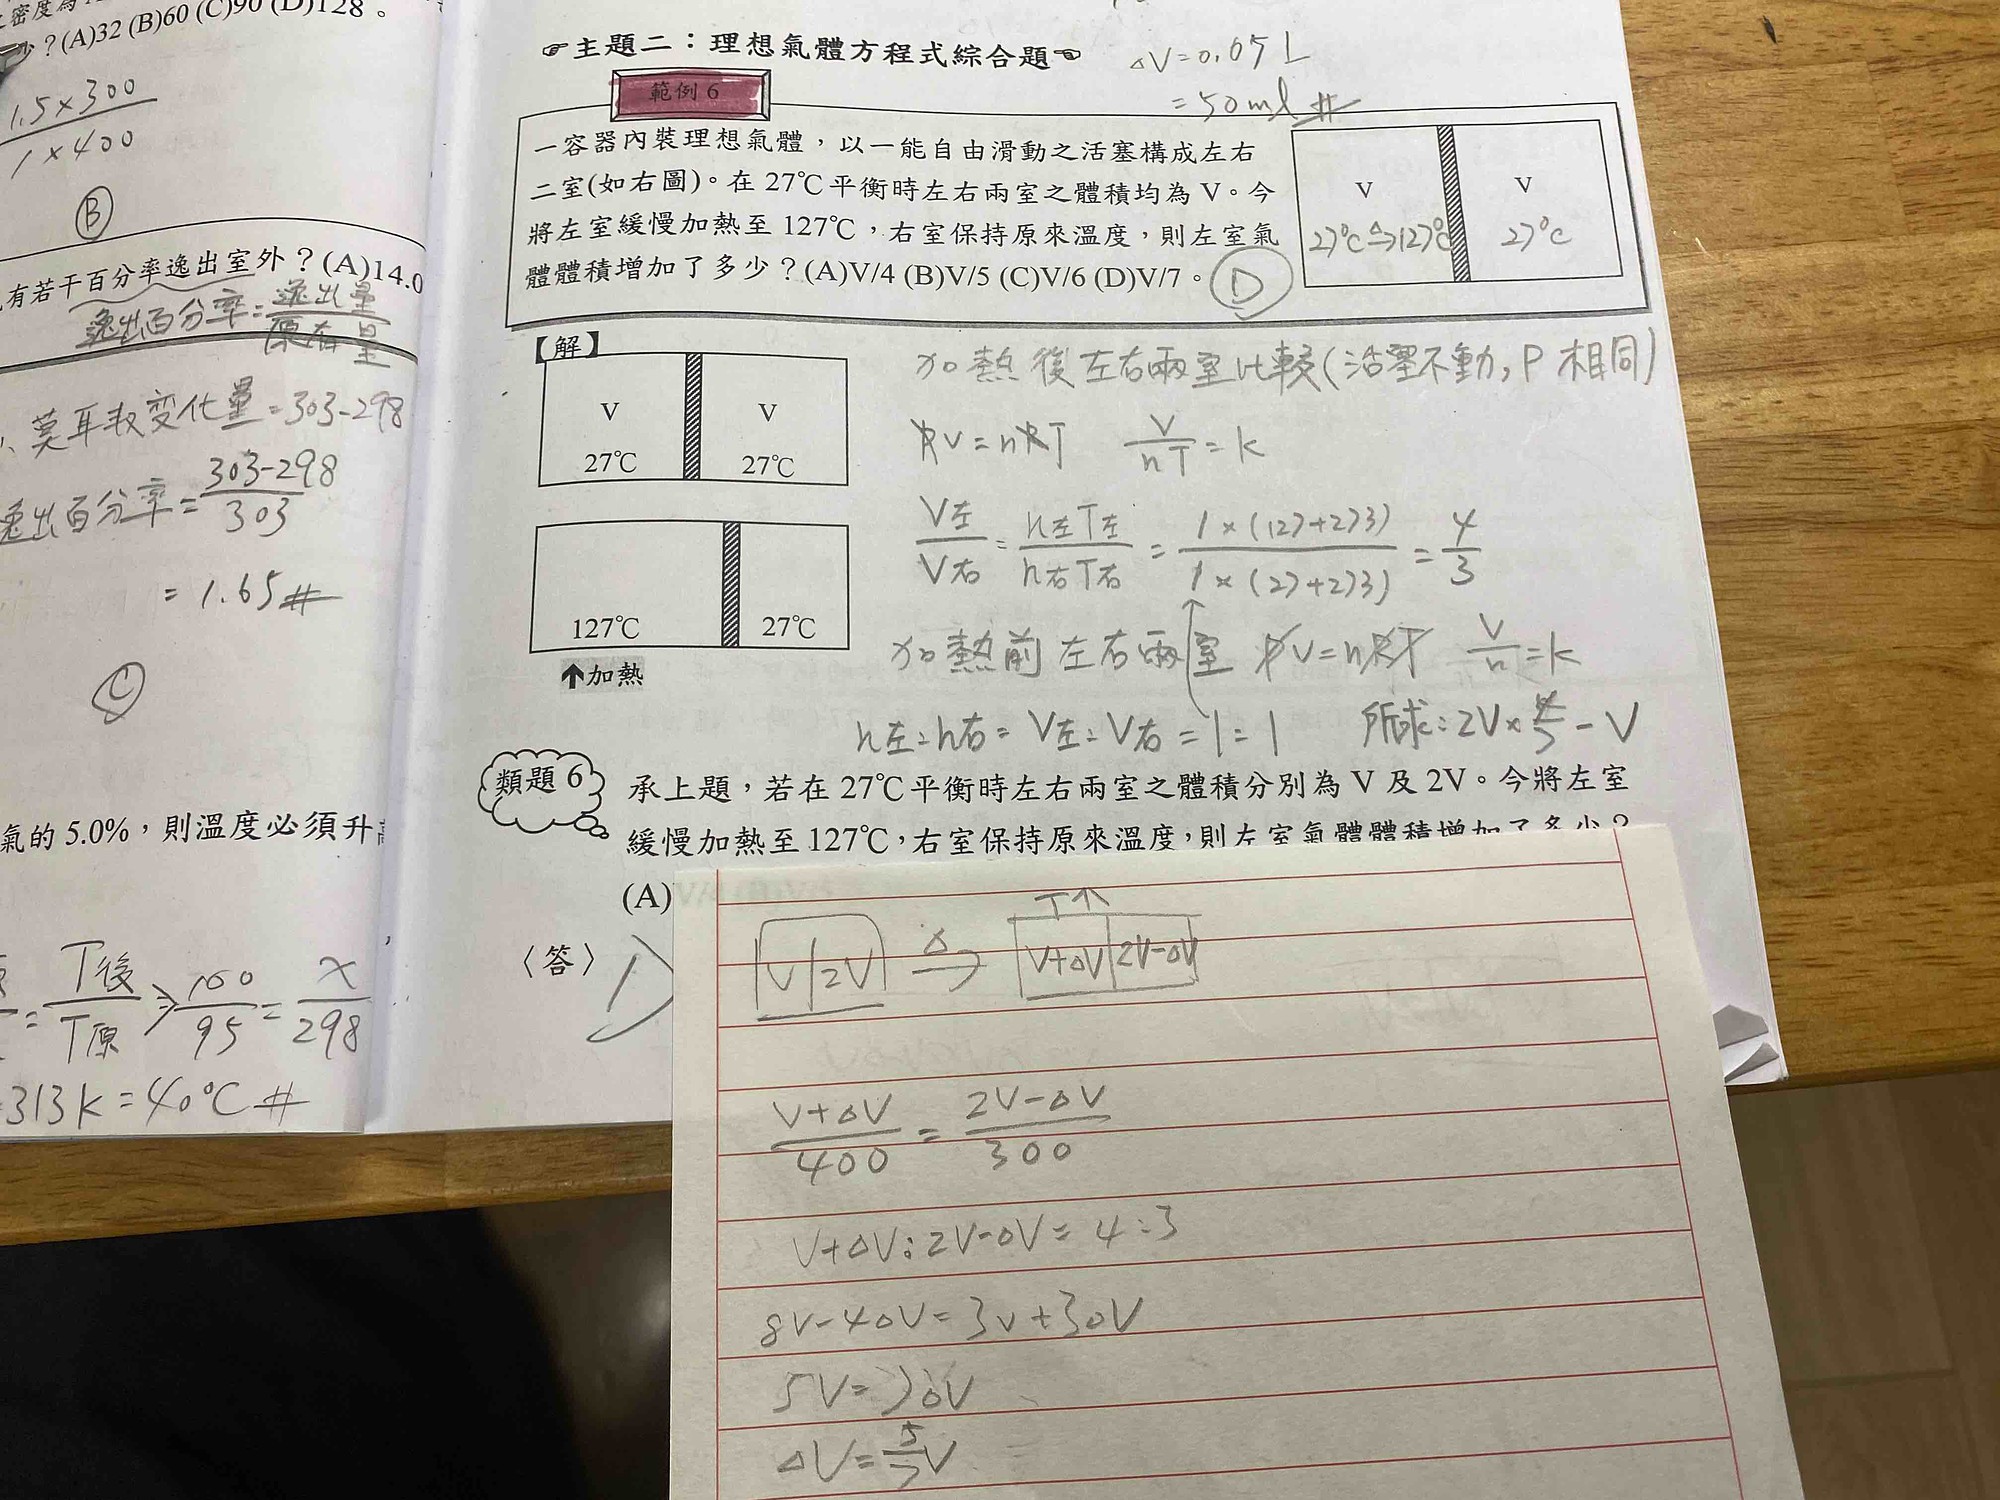 少？(A)32 (B)60 (C)90 (D)128。
1.5×300
1×400
B
有若干百分率逸出室外？(A)14.0
逸出百分率=逸出量
原有量
莫耳數变化量=303-298
逸出百分率=303-298
303
= 1.65#
C
氣的 5.0%，則溫度必須升
= T後 ⇒ 100 = x
T原 95 298
313K=40℃#
☞主題二：理想氣體方程式綜合題☜
△V=0.05L
=50ml#
範例 6
一容器內裝理想氣體，以一能自由滑動之活塞構成左右
二室(如右圖)。在 27℃平衡時左右兩室之體積均為 V。今
將左室緩慢加熱至 127℃，右室保持原來溫度，則左室氣
體體積增加了多少？(A)V/4 (B)V/5 (C)V/6 (D)V/7。
D
V V
27℃ △→127℃ 27℃
【解】
V V
27℃ 27℃
127℃ 27℃
↑加熱
加熱後左右兩室比較(活塞不動，P相同)
PV=nRT V/nT=k
V左/V右 = n左T左/n右T右 = 1×(127+273)/1×(27+273) = 4/3
加熱前左右兩室 PV=nRT V/n=k
n左:n右=V左:V右=1:1 所求:2V×4/7-V
類題 6
承上題，若在 27℃平衡時左右兩室之體積分別為 V 及 2V。今將左室
緩慢加熱至 127℃，右室保持原來溫度，則左室氣體體積增加了多少？
(A)
〈答〉D
T↑
V 2V △→ V+△V 2V-△V
V+△V/400 = 2V-△V/300
V+△V:2V-△V=4:3
8V-4△V=3V+3△V
5V=7△V
△V=5/7V